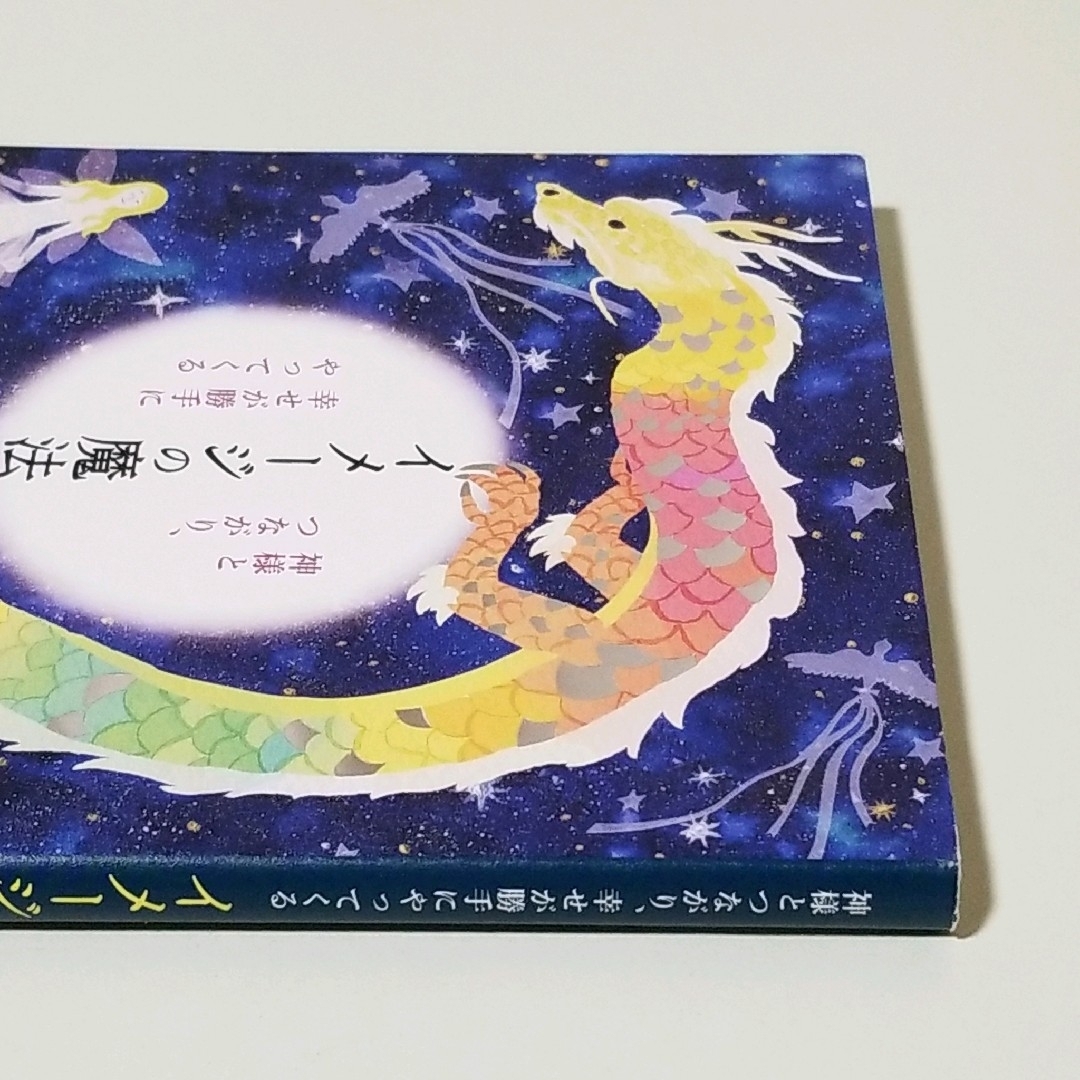 神様と
つながり、
イメージの魔法
幸せが勝手に
やってくる
神様とつながり、幸せが勝手にやってくる イメージ